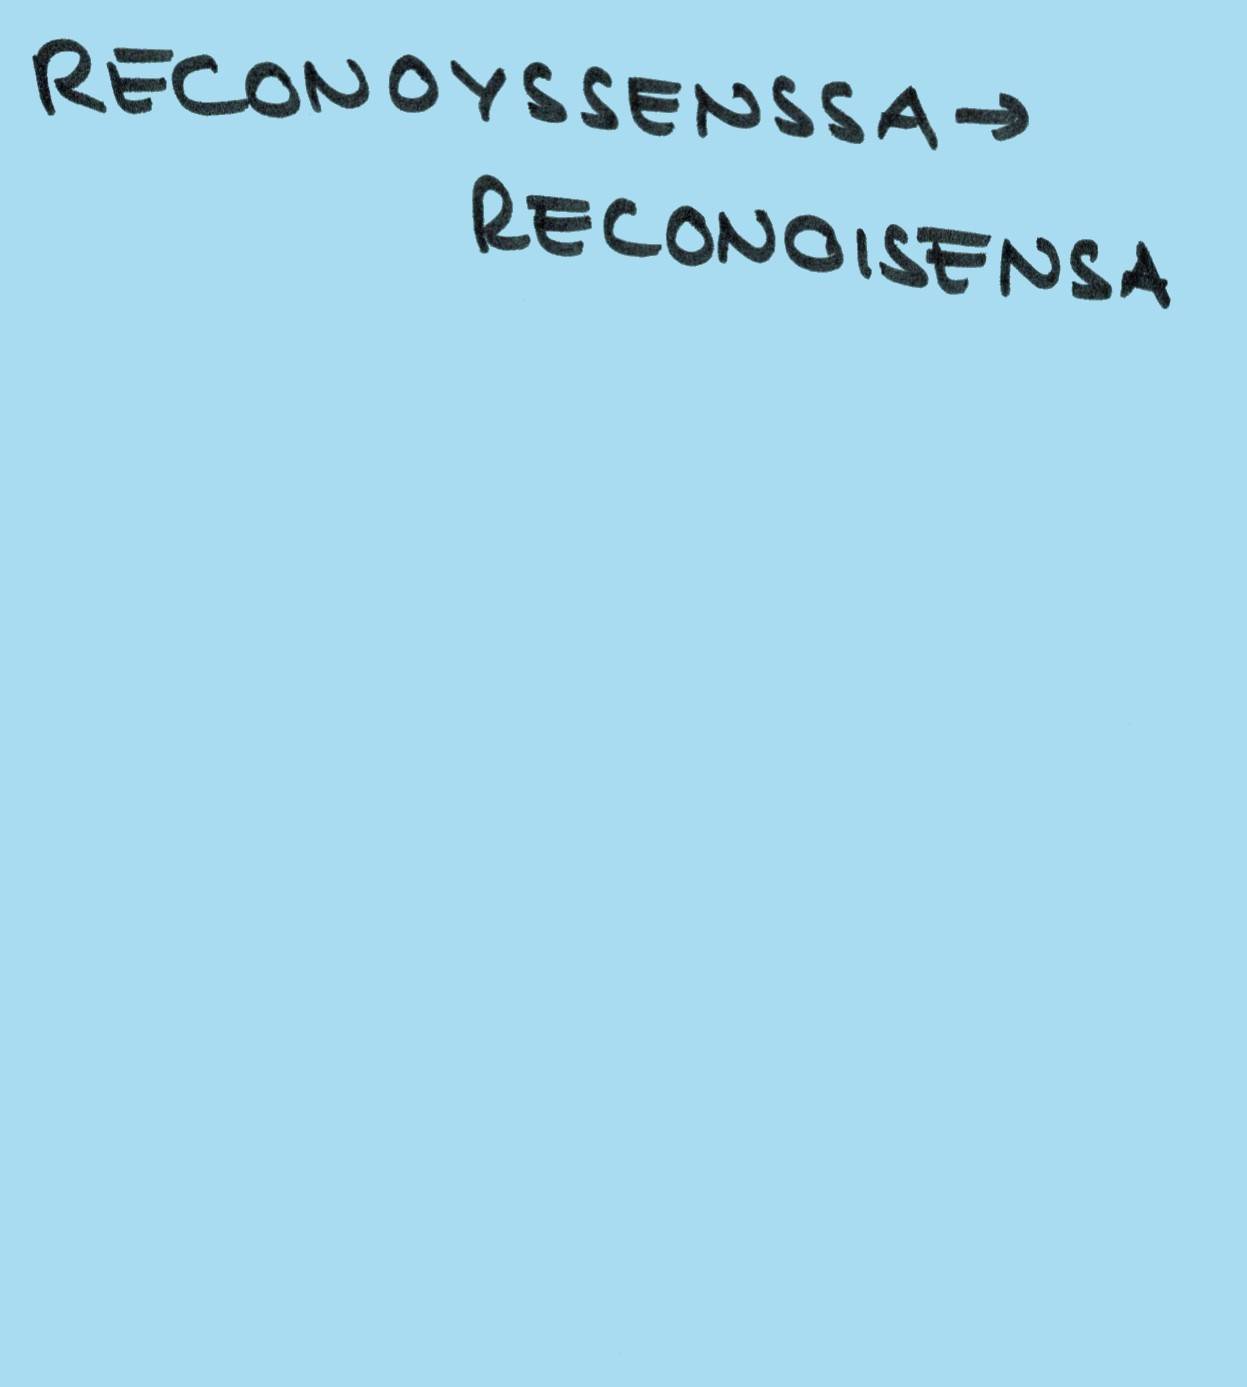 RECONOYSSENSSA →
RECONOISENSA